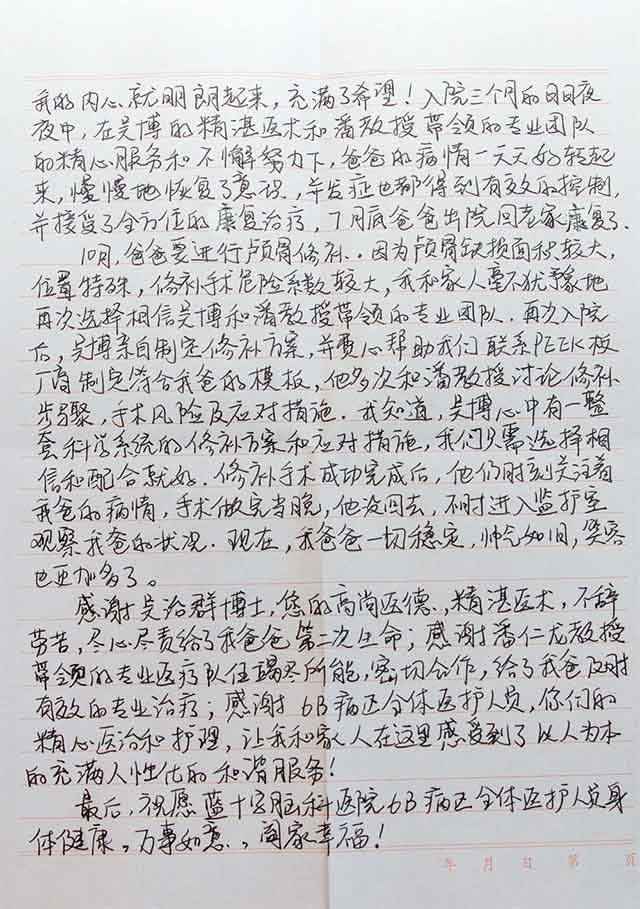 我的内心就明朗起来，充满了希望！入院三个月的日日夜
夜中，在吴博的精湛医术和潘教授带领的专业团队
的精心服务和不懈努力下，爸爸的病情一天天好转起
来，慢慢地恢复了意识，并发症也都得到有效的控制，
并接受了全方位的康复治疗，7月底爸爸出院回老家康复了.
10月，爸爸要进行颅骨修补.因为颅骨缺损面积较大，
位置特殊，修补手术危险系数较大，我和家人毫不犹豫地
再次选择相信吴博和潘教授带领的专业团队.再次入院
后，吴博亲自制定修补方案，并费心帮助我们联系PEEK板
厂商制定符合我爸的模板，他多次和潘教授讨论修补
步骤，手术风险及应对措施.我知道，吴博心中有一整
套科学系统的修补方案和应对措施，我们只需选择相
信和配合就好.修补手术成功完成后，他们时刻关注着
我爸的病情，手术做完当晚，他没回去，不时进入监护室
观察我爸的状况.现在，我爸爸一切稳定，帅气如旧，笑容
也更加多了。
感谢吴治群博士，您的高尚医德，精湛医术，不辞
劳苦，尽心尽责给了我爸爸第二次生命；感谢潘仁龙教授
带领的专业医疗队伍竭尽所能，密切合作，给了我爸及时
有效的专业治疗；感谢6B病区全体医护人员，你们的
精心医治和护理，让我和家人在这里感受到了以人为本
的充满人性化的和谐服务！
最后，祝愿蓝十字脑科医院6B病区全体医护人员身
体健康，万事如意，阖家幸福！
年 月 日 第 頁